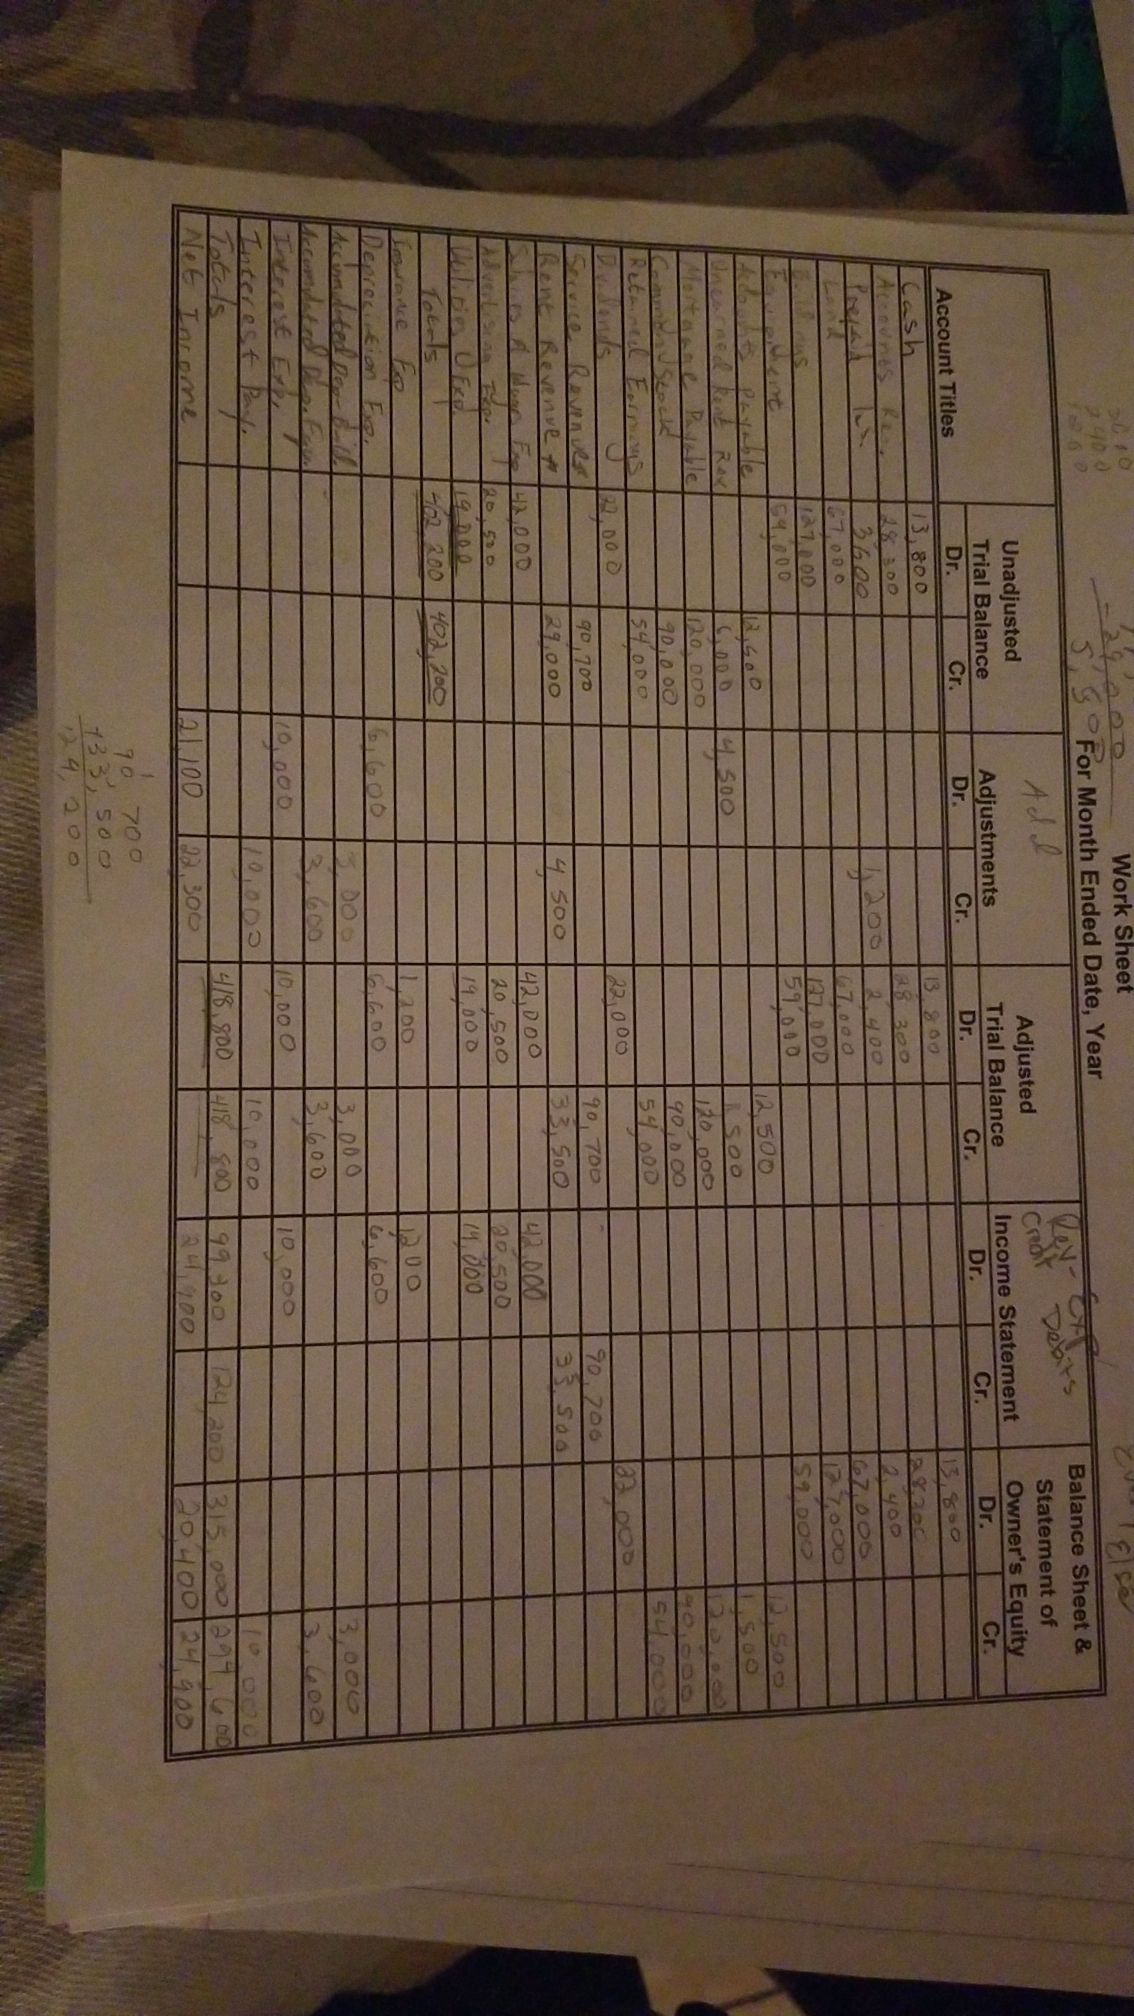 Work Sheet
For Month Ended Date, Year
2400
29,000
5,500
Add
Rev - Exp
Credit Debits
Account Titles
Unadjusted Trial Balance
Adjustments
Adjusted Trial Balance
Income Statement
Balance Sheet & Statement of Owner's Equity
Dr. Cr. Dr. Cr. Dr. Cr. Dr. Cr. Dr. Cr.
Cash 13,800 13,800 13,800
Accounts Rec. 28,300 28,300
Prepaid Ins. 3600 1,200 2,400 2,400
Land 67,000 67,000 67,000
Buildings 127,000 127,000 127,000
Equipment 59,000 59,000 59,000
Accounts Payable 12,500 12,500 12,500
Unearned Rent Rev 6,000 4,500 1,500 1,500
Mortgage Payable 120,000 120,000 120,000
Common Stock 90,000 90,000 90,000
Retained Earnings 54,000 54,000 54,000
Dividends 22,000 22,000 22,000
Service Revenue 90,700 90,700 90,700
Rent Revenue 29,000 4,500 33,500 33,500
42,000 42,000 42,000
20,500 20,500 20,500
Utilities Exp 19,000 19,000 19,000
Totals 402,200 402,200
Insurance Exp 1,200 1200
Depreciation Exp. 6,600 6,600 6,600
Accumulated Dep-Buil 3,000 3,000 3,000
Accumulated Dep. Equi. 3,600 3,600 3,600
Interest Exp. 10,000 10,000 10,000
Interest Pay. 10,000 10,000 10,000
Totals 418,800 418,800 99,300 124,200 315,000 294,600
Net Income 21,100 22,300 24,900 20,400 24,900
90,700
+33,500
124,200